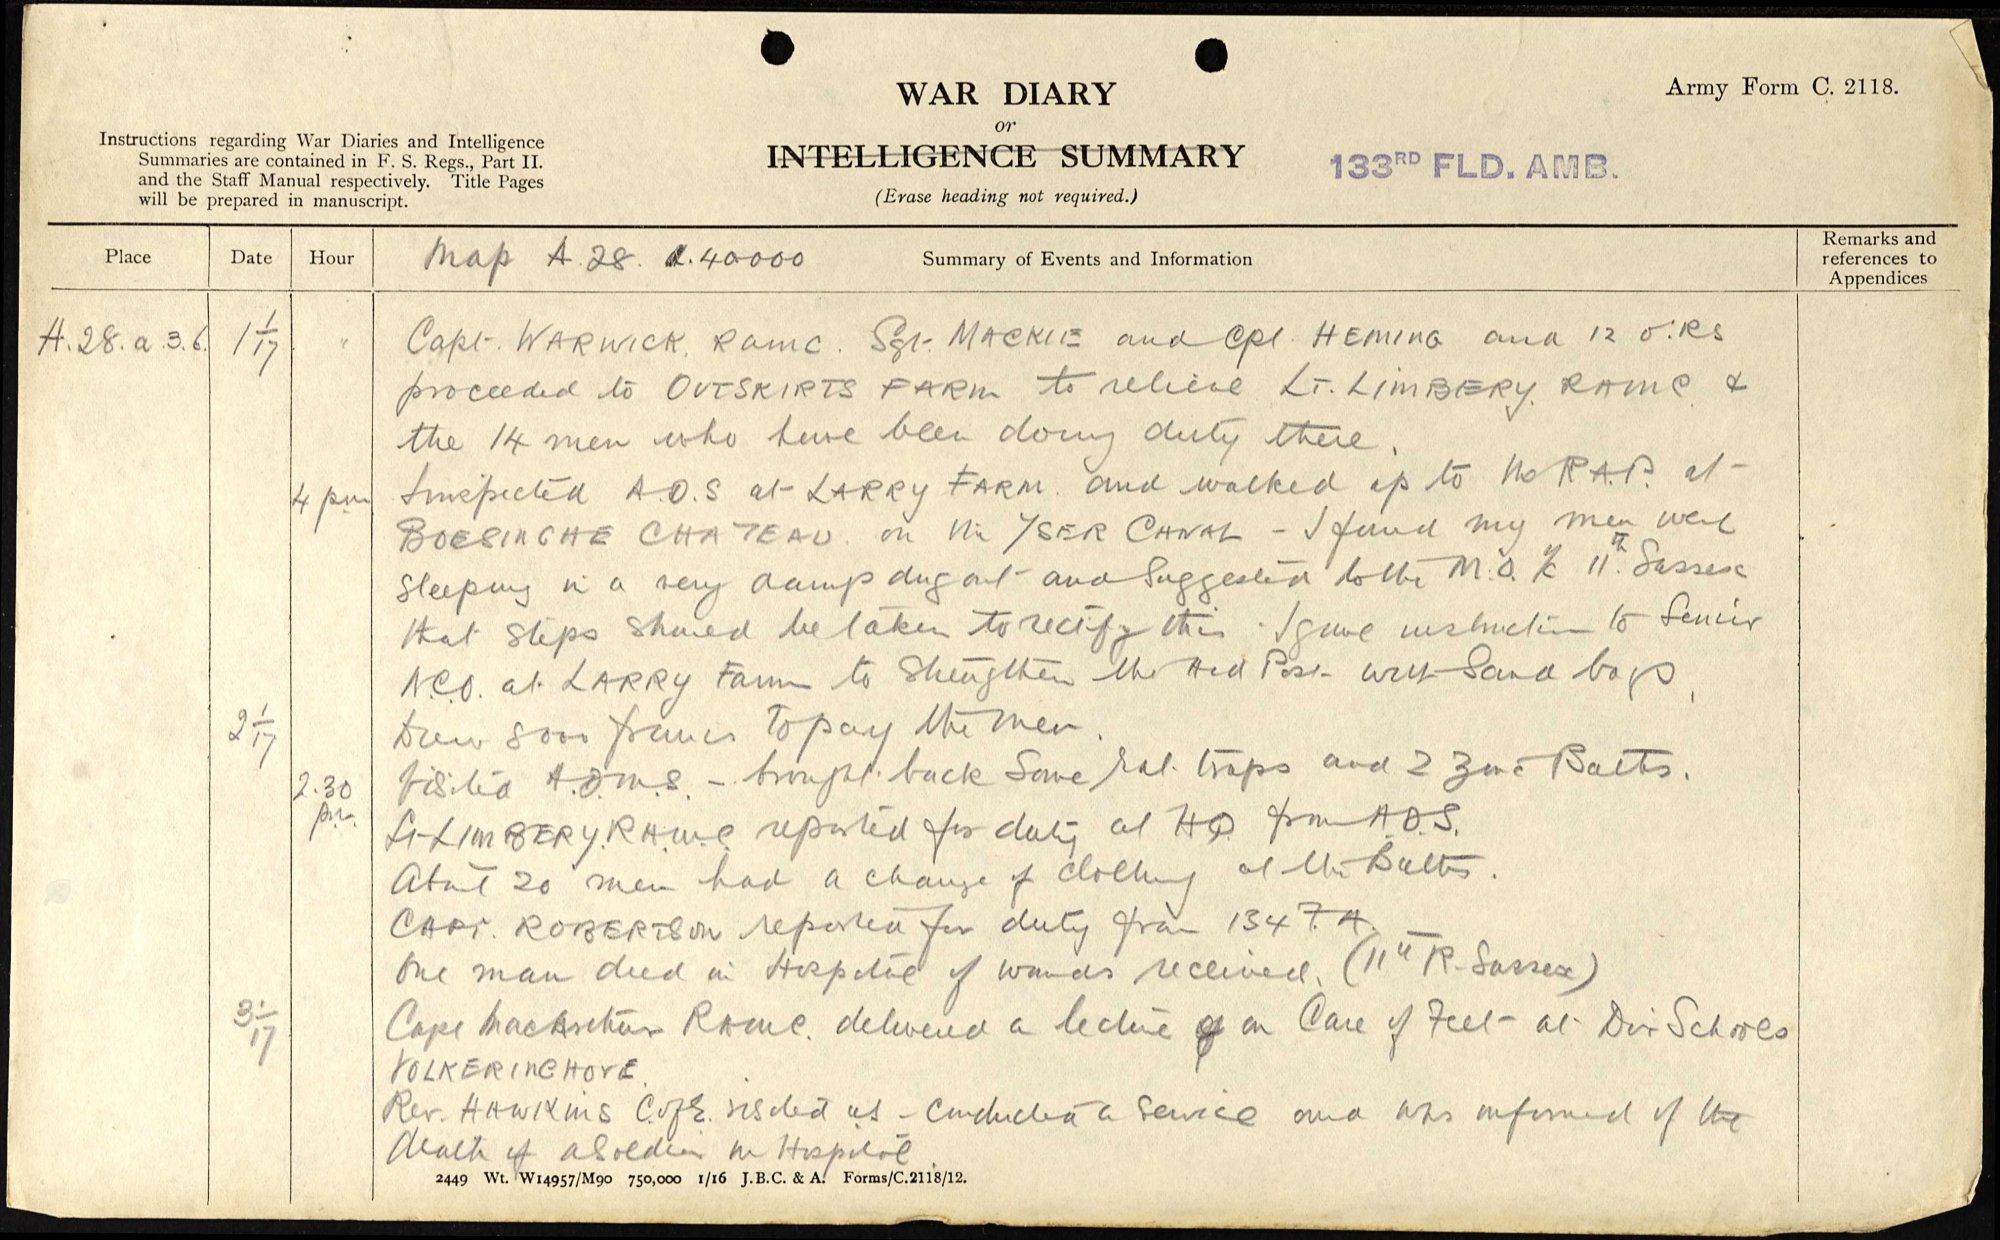 WAR DIARY
or
INTELLIGENCE SUMMARY
(Erase heading not required.)
Army Form C. 2118.
Instructions regarding War Diaries and Intelligence
Summaries are contained in F. S. Regs., Part II.
and the Staff Manual respectively. Title Pages
will be prepared in manuscript.
133RD FLD. AMB.
Place
Date
Hour
Map A.28. 1.40000
Summary of Events and Information
Remarks and
references to
Appendices
A.28.a.3.6. 1 1/17 " Capt. WARWICK. RAMC. Sgt. MACKIE and Cpl. HEMING and 12 O.Rs
proceeded to OUTSKIRTS FARM to relieve LT. LIMBERY. RAMC. &
the 14 men who have been doing duty there.
4 pm Inspected A.D.S at LARRY FARM. and walked up to the R.A.P. at
BOESINGHE CHATEAU. on the YSER CANAL - I found my men were
sleeping in a very damp dug out and suggested to the M.O. i/c 11th Sussex
that steps should be taken to rectify this. I gave instruction to Senior
N.C.O. at LARRY Farm to strengthen the Aid Post with Sand bags.
2 1/17 Drew 5000 francs to pay the men.
2.30 pm. Visited A.D.M.S. - brought back some rat traps and 2 Zinc Baths.
Lt LIMBERY. RAMC. reported for duty at HQ from A.D.S.
About 20 men had a change of clothing at the Baths.
CAPT. ROBERTSON reported for duty from 134 F.A.
One man died in Hospital of wounds received. (11th R. Sussex)
3 1/17 Capt MacArthur RAMC. delivered a lecture on Care of Feet at Div Schools
VOLKERINCHOVE.
Rev. HAWKINS C.ofE. visited us - conducted a Service and was informed of the
death of a Soldier in Hospital.
2449 Wt. W14957/M90 750,000 1/16 J.B.C. & A. Forms/C.2118/12.